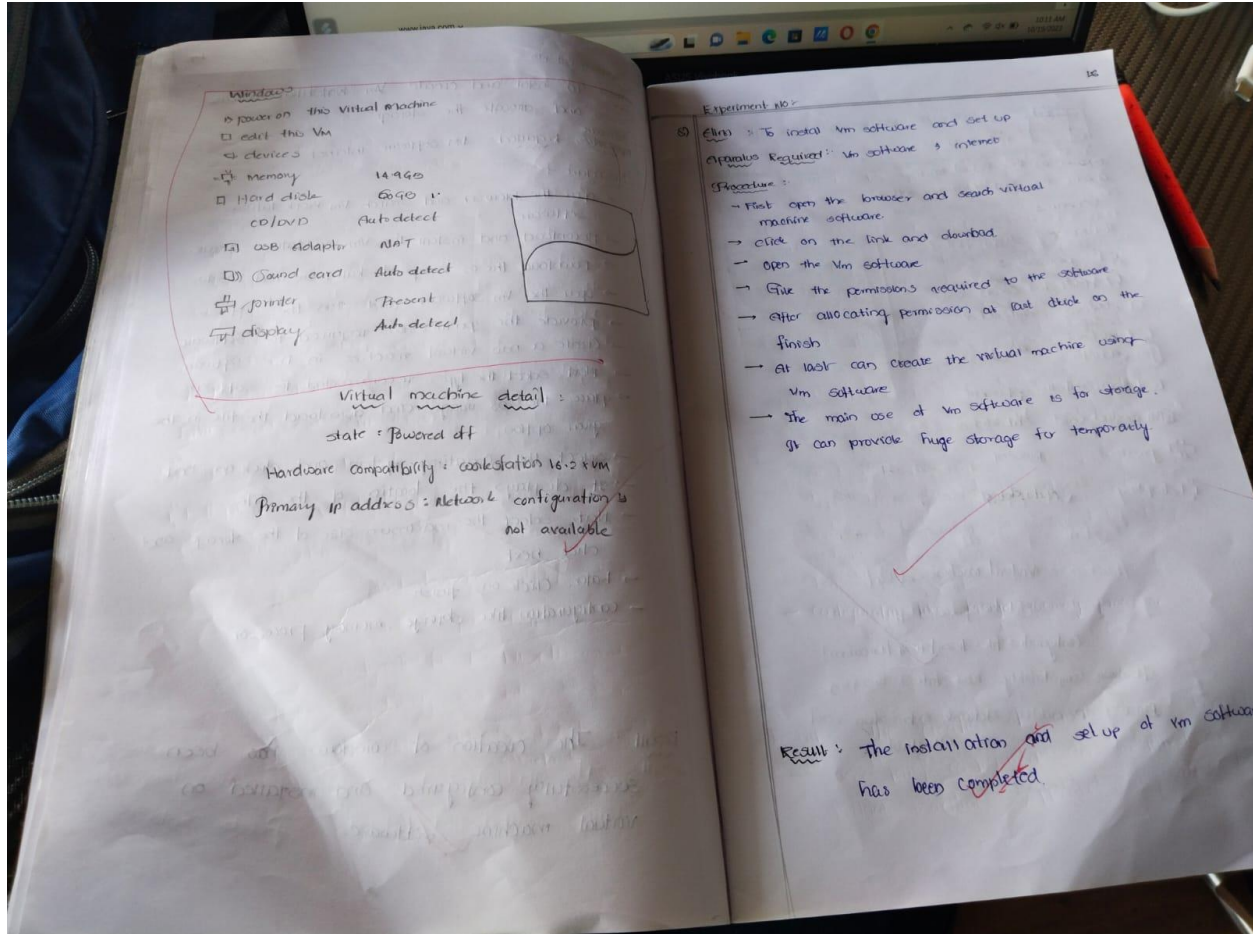 www.java.com
10:11 AM
10/13/2023
Windows
power on this Virtual Machine
edit this VM
devices
Memory 14.9GB
Hard disk 60GB
CD/DVD Auto detect
USB Adaptor NAT
Sound card Auto detect
printer Present
display Auto detect
Virtual machine detail :
state : Powered off
Hardware compatibility : workstation 16.2 x VM
Primary ip address : Network configuration is
not available
Experiment No:-
Aim : To install Vm software and set up
Apparatus Required:- Vm software , internet
Procedure :
→ First open the browser and search virtual
machine software.
→ click on the link and download.
→ open the Vm software
→ Give the permissions required to the software
→ After allocating permission at last click on the
finish
→ At last can create the virtual machine using
Vm software
→ The main use of Vm software is for storage.
It can provide huge storage for temporarily.
Result : The installation and set up of Vm softwa
has been completed.